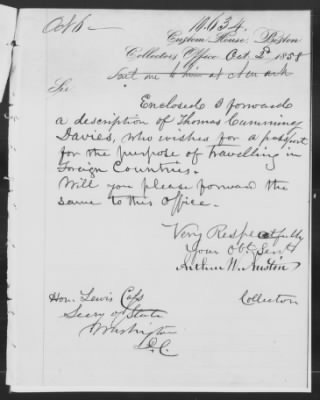 Oct 6
10.634.
Custom House, Boston
Collector's Office Oct 5th 1858
Sent me to him at
Sir
Enclosed I forward
a description of Thomas Cumming
Davies, who wishes for a passport
for the purpose of travelling in
Foreign Countries.
Will you please forward the
same to this Office.
Very Respectfully
Your Obt. Servt
Arthur W. Austin
Collector
Hon. Lewis Cass
Secry of State
Washington
D.C.